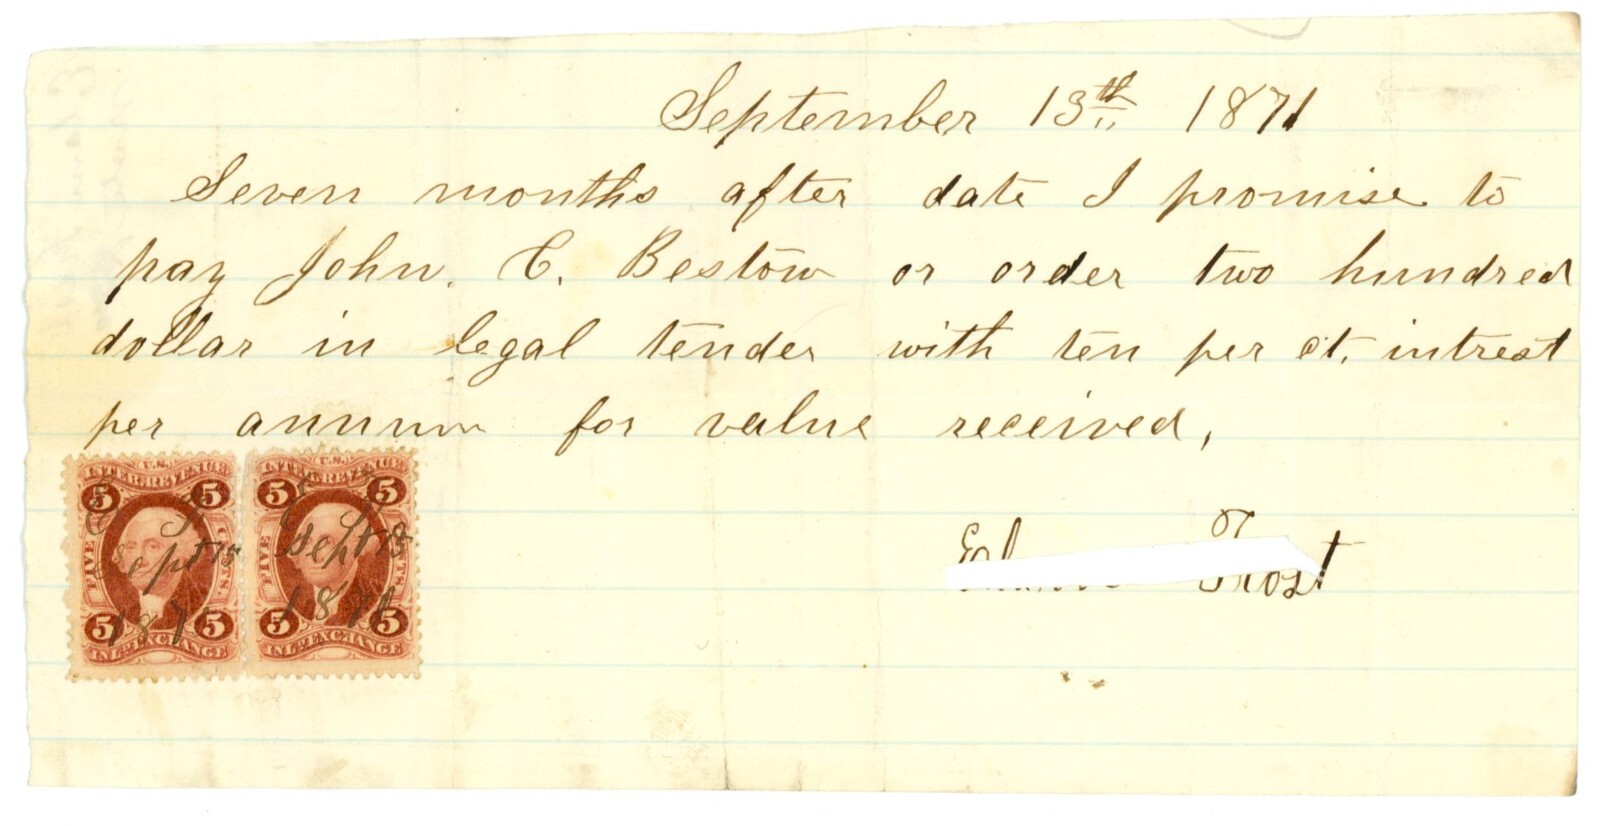 September 13th 1871
Seven months after date I promise to
pay John. C. Bestow or order two hundred
dollar in legal tender with ten per ct. intrest
per annum for value received,
U.S. INTER. REVENUE U.S. INTER. REVENUE
5 5 5 5
E F E F
FIVE CTS. FIVE CTS.
Sept 13 Sept 13
1871 1871
5 5 5 5
INL'D EXCHANGE INL'D EXCHANGE
Frost